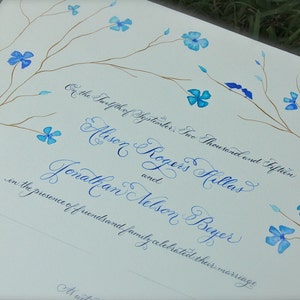 On the Twelfth of September, Two Thousand and Fifteen
Alison Rogers Killas
and
Jonathan Nelson Beyer
in the presence of friends and family celebrated their marriage